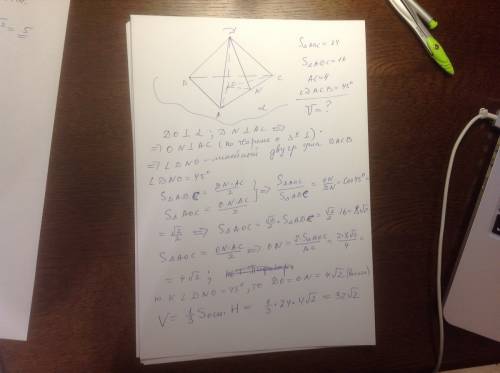 = 5
D
B
C
E
N
A
α
S△ABC = 24
S△ADC = 16
AC = 4
∠DACB = 45°
V = ?
DO ⊥ α ; DN ⊥ AC ⇒
⇒ ON ⊥ AC (по теореме о 3х ⊥)
⇒ ∠DNO – линейный двугр. угла DACB
∠DNO = 45°
S△ADC = DN·AC/2
S△AOC = ON·AC/2
⇒ S△AOC/S△ADC = ON/DN = cos 45° =
= √2/2 ⇒ S△AOC = √2/2 · S△ADC = √2/2 · 16 = 8√2
S△AOC = ON·AC/2 ⇒ ON = 2·S△AOC/AC = 2·8√2/4 =
= 4√2 ;
т.к ∠DNO = 45°, то DO = ON = 4√2 (высота)
V = 1/3 Sосн. H = 1/3 · 24 · 4√2 = 32√2